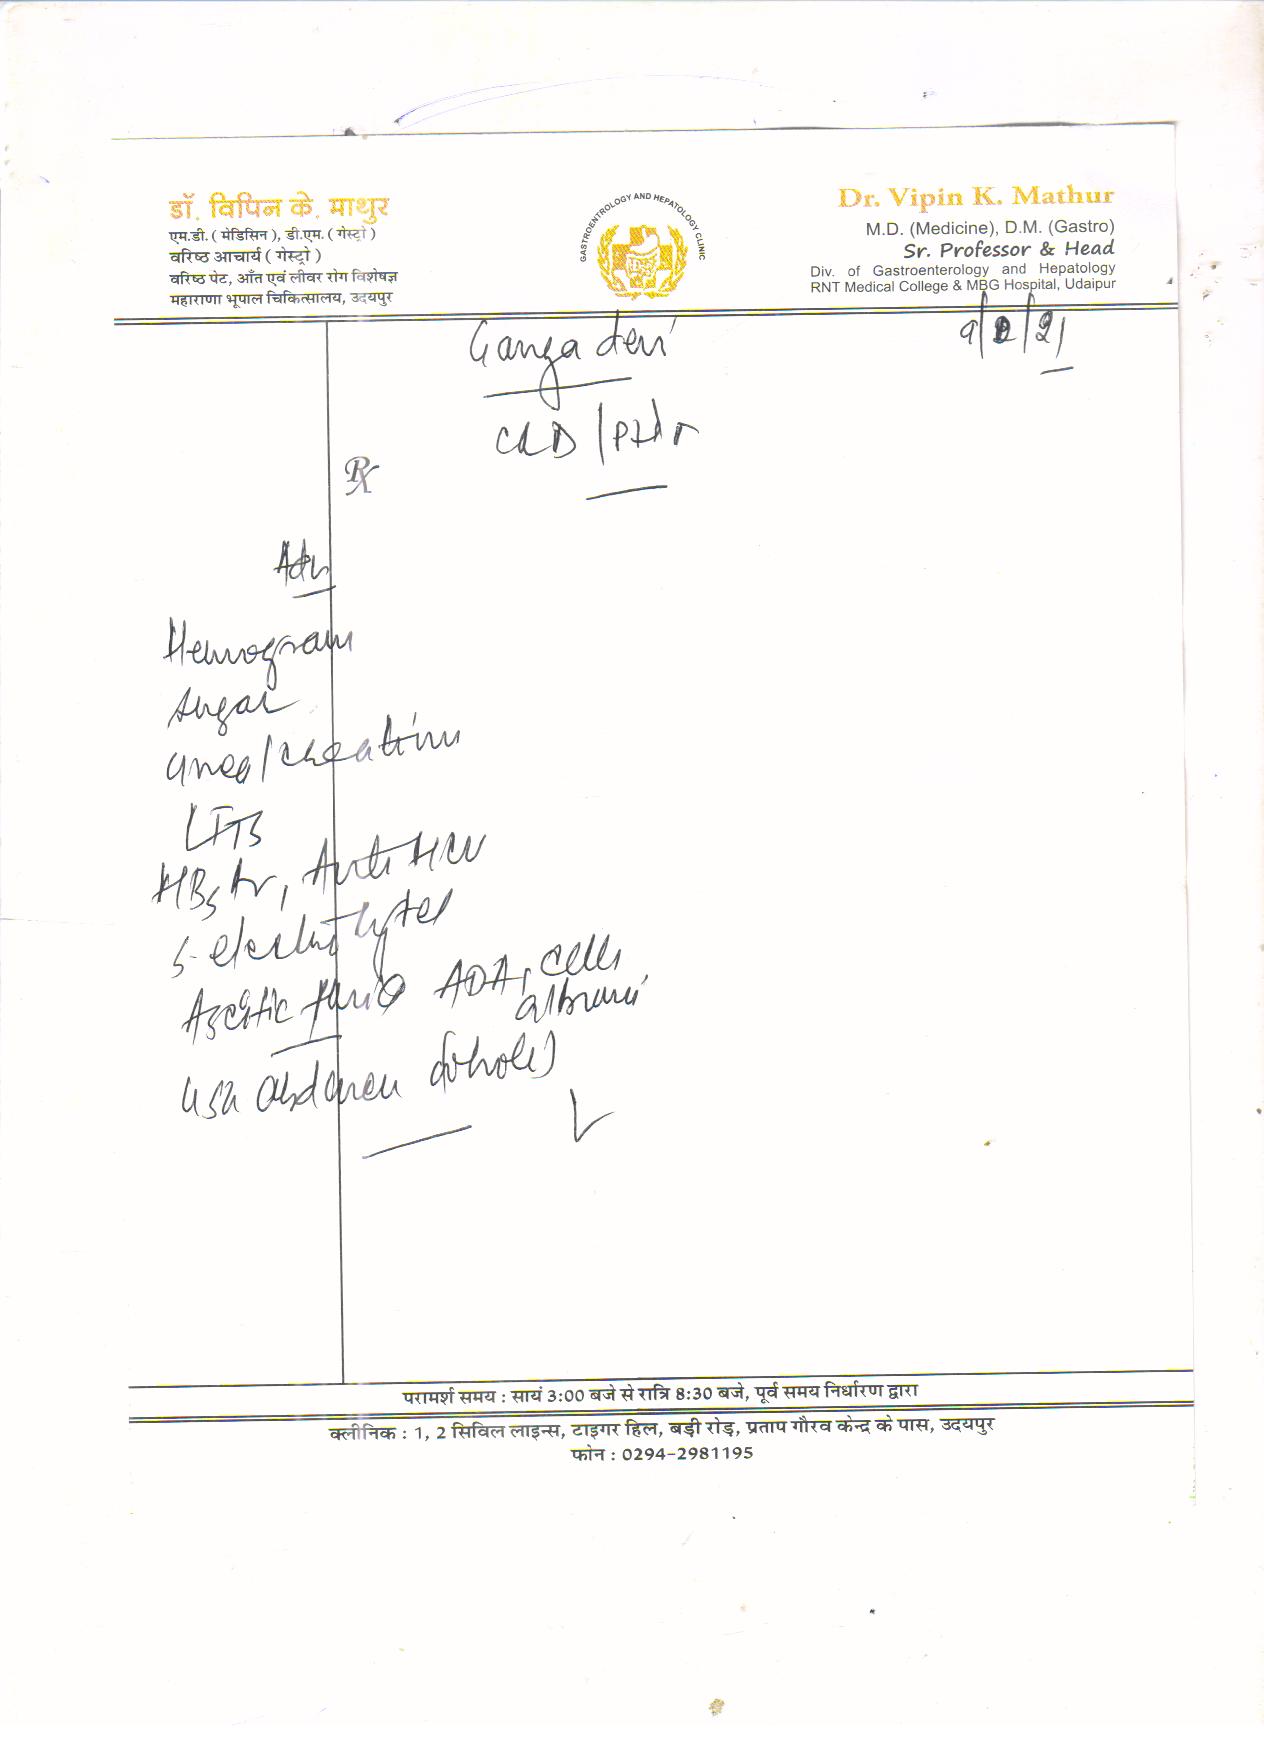 डॉ. विपिन के. माथुर
एम.डी. ( मेडिसिन ), डी.एम. ( गेस्ट्रो )
वरिष्ठ आचार्य ( गेस्ट्रो )
वरिष्ठ पेट, आँत एवं लीवर रोग विशेषज्ञ
महाराणा भूपाल चिकित्सालय, उदयपुर
GASTROENTROLOGY AND HEPATOLOGY CLINIC
Dr. Vipin K. Mathur
M.D. (Medicine), D.M. (Gastro)
Sr. Professor & Head
Div. of Gastroenterology and Hepatology
RNT Medical College & MBG Hospital, Udaipur
Ganga devi
9/2/21
CLD /
Rx
Adv
Hemogram
Sugar
Urea/Creatinin
LFTs
HBsAg, Anti HCV
S-electrolytes
Ascitic fluid ADA, cells
albumin
USG abdomen (whole)
परामर्श समय : सायं 3:00 बजे से रात्रि 8:30 बजे, पूर्व समय निर्धारण द्वारा
क्लीनिक : 1, 2 सिविल लाइन्स, टाइगर हिल, बड़ी रोड़, प्रताप गौरव केन्द्र के पास, उदयपुर
फोन : 0294-2981195